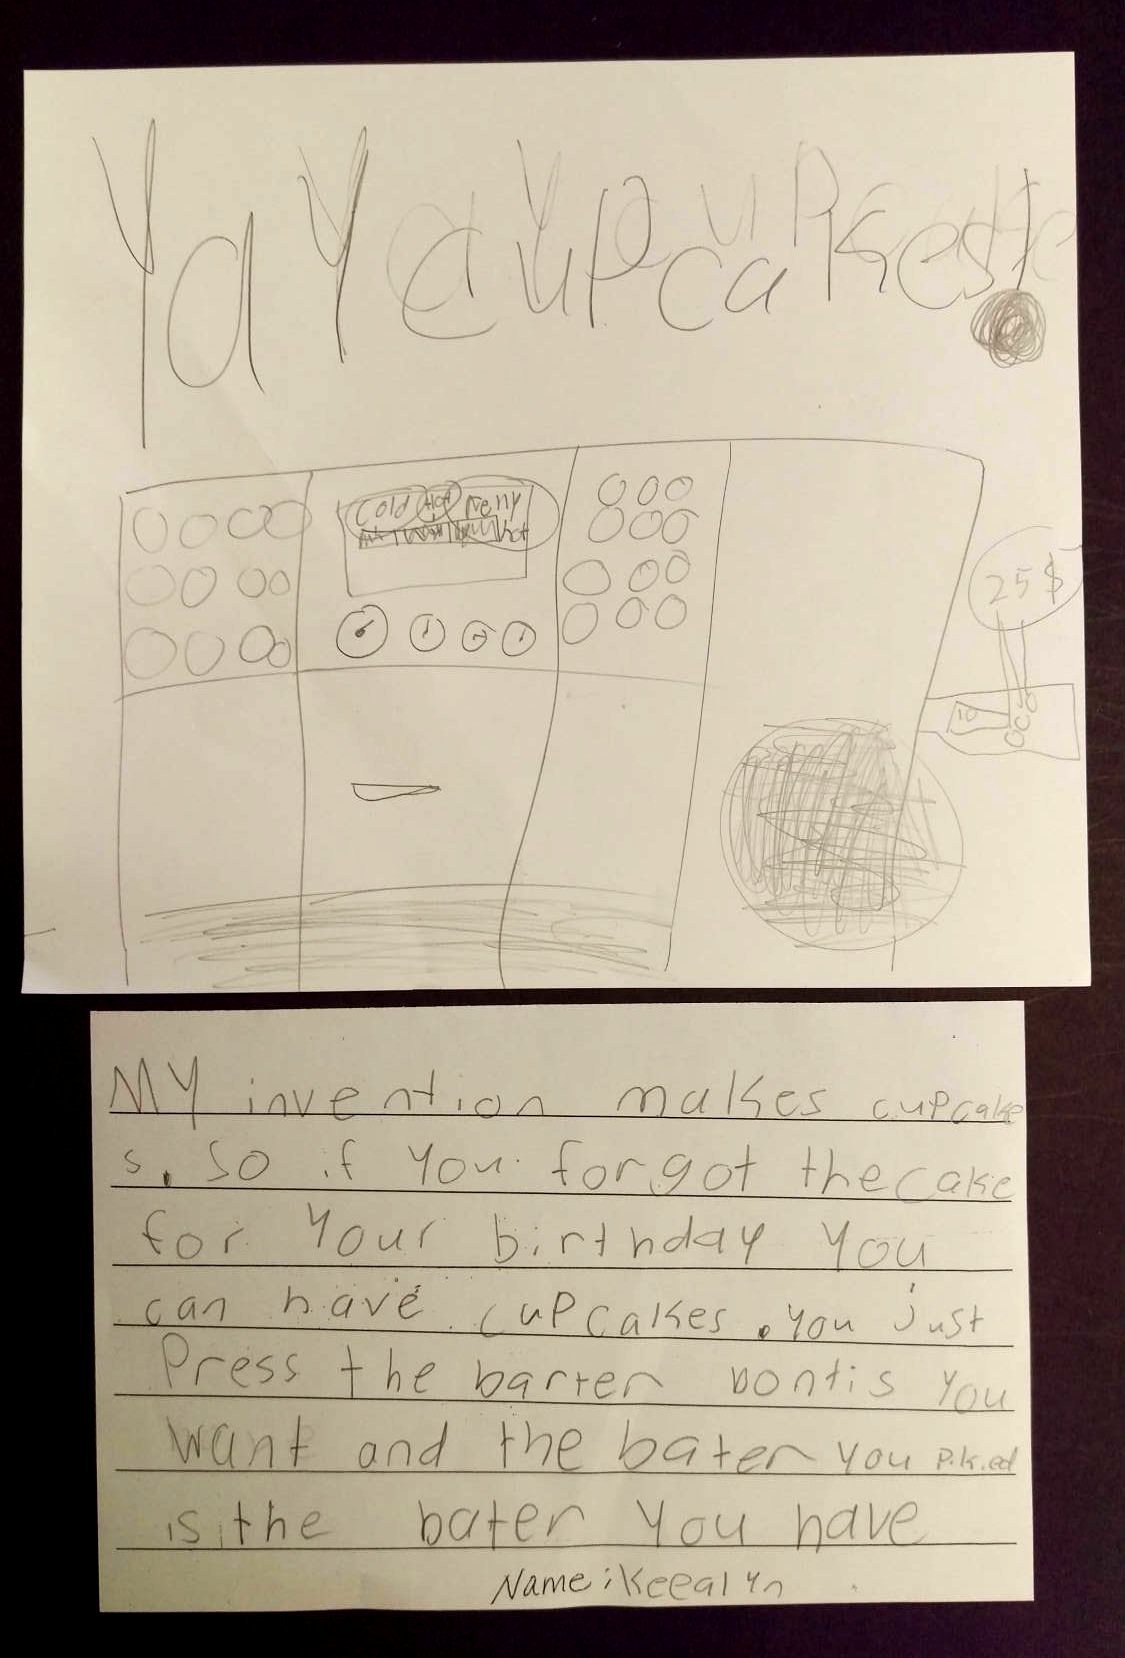 Yay cupcakes!
cold Hot
hot
25$
10
My invention makes cupcake
s. So if you forgot the cake
for Your birthday you
can have cupcakes. you just
Press the barter bontis you
want and the bater you piked
is the bater you have
Name: Keealyn